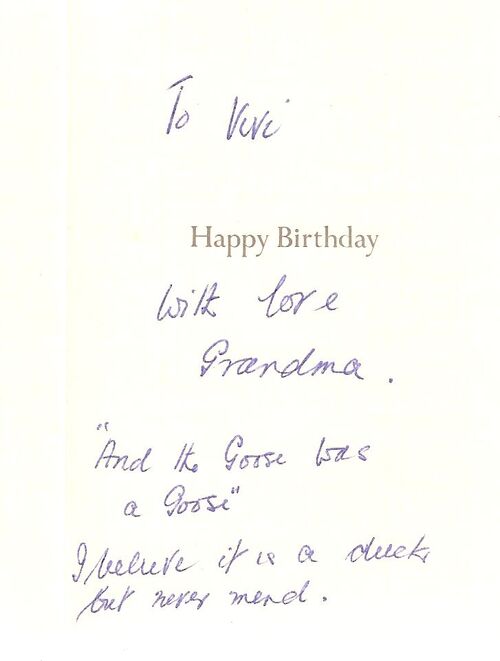 To Vivi
Happy Birthday
With love
Grandma.
"And the Goose was
a Goose"
I believe it is a duck
but never mind.